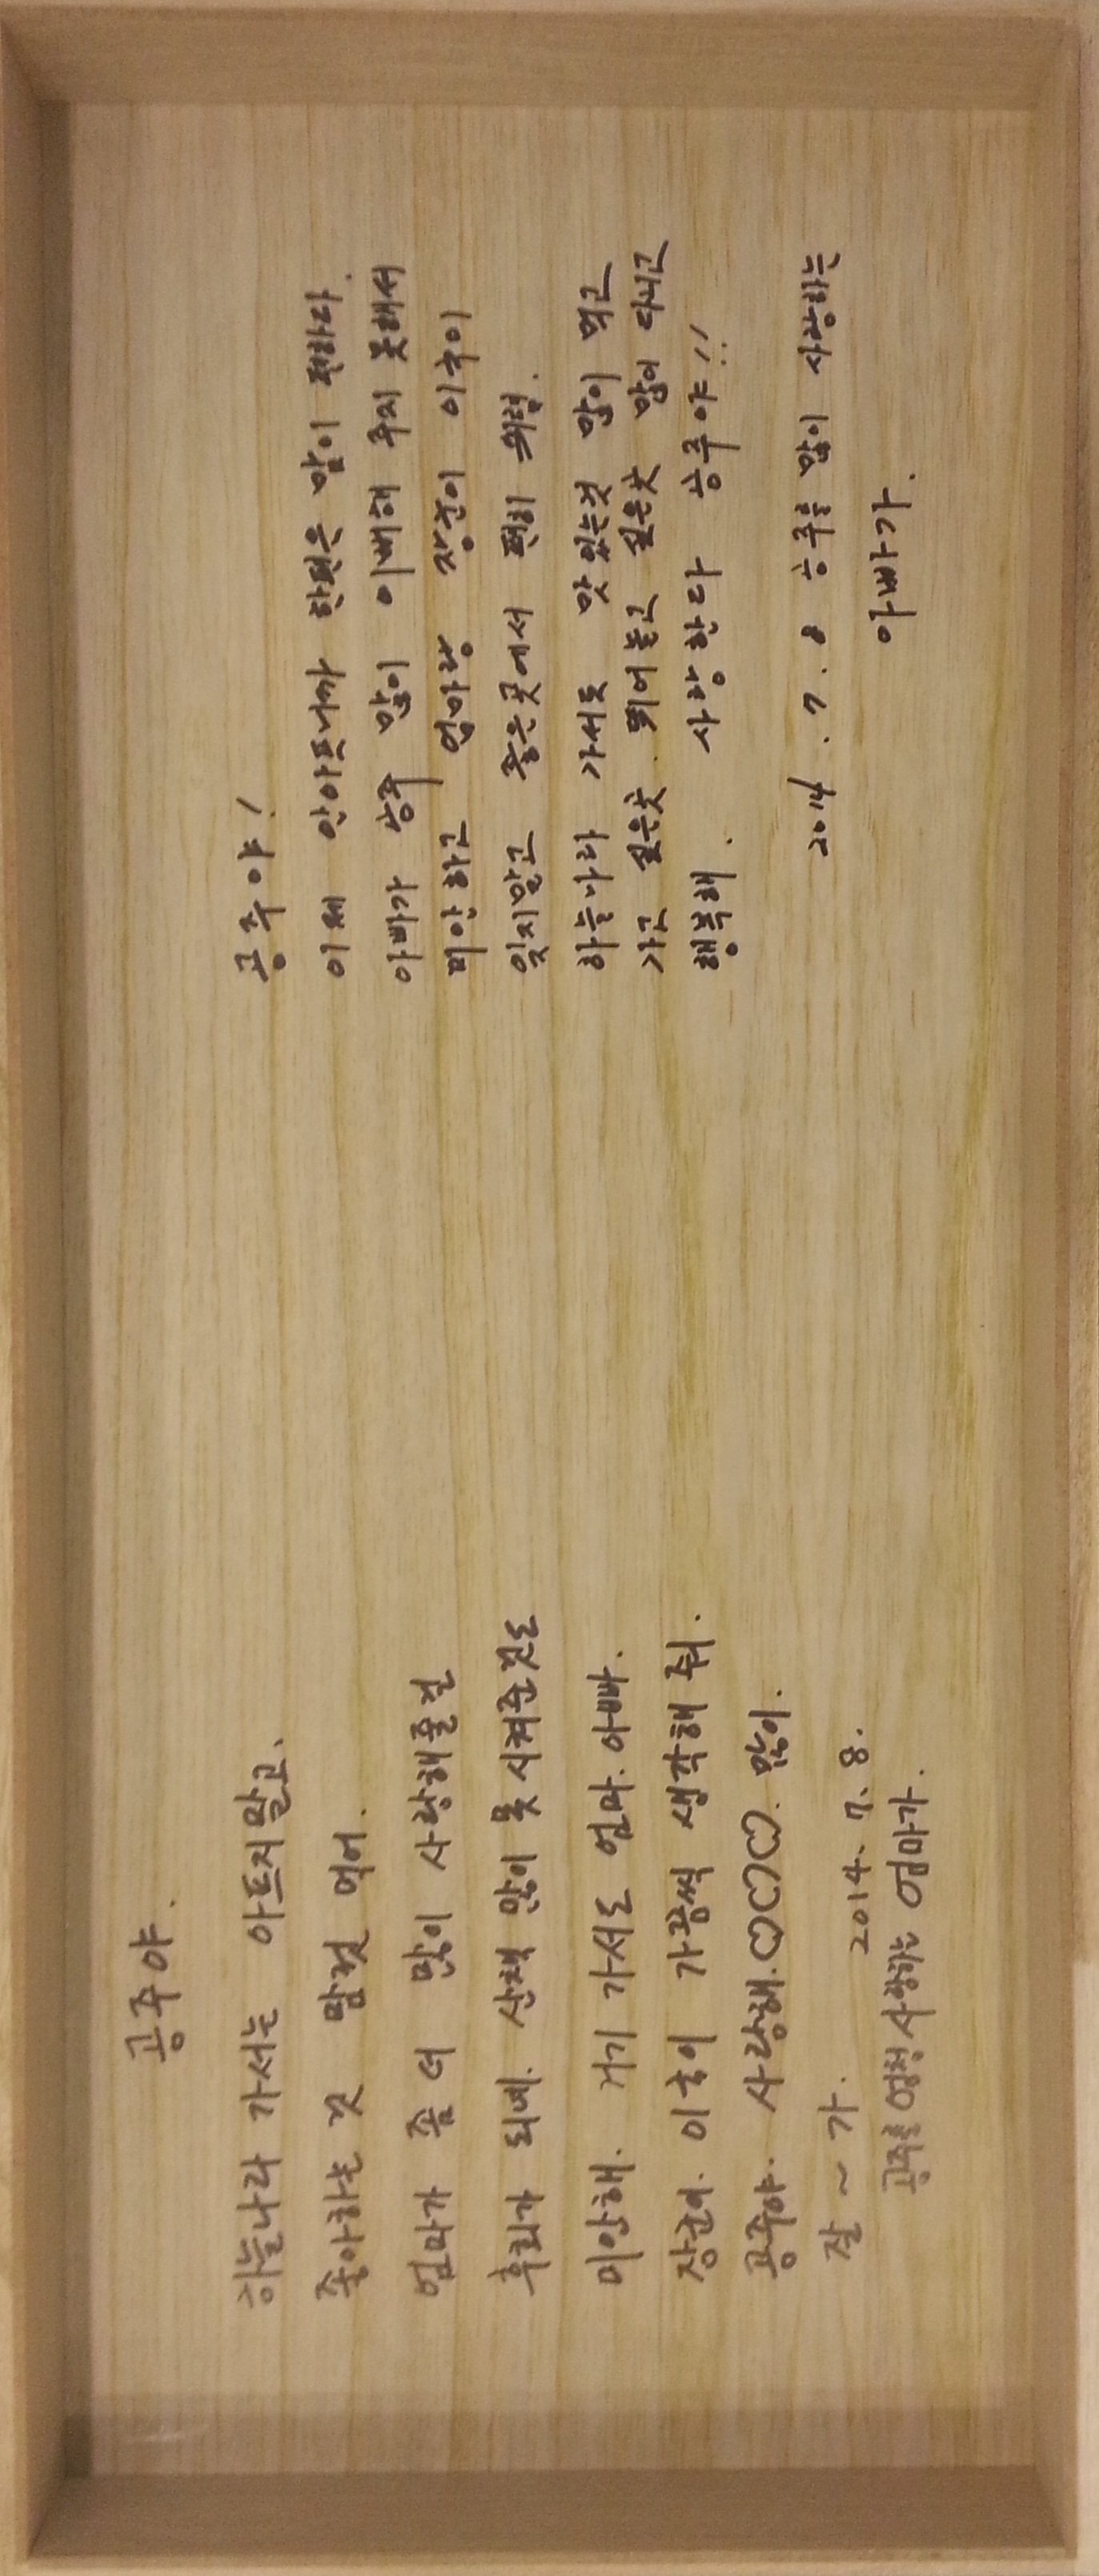 공주야.
하늘나라 가서는 아프지말고.
좋아하는 것 맘껏 먹어.
엄마가 좀 더 많이 사랑해줄걸
후회가 되네. 산책 많이 못 시켜준것도
미안해. 거기 가서도 엄마. 아빠.
장군이. 이쁜이 가끔씩 생각해 줘.
공주야. 사랑해.♡♡♡. 많이.
잘~가. 2014. 7. 8.
공주를 엄청 사랑하는 엄마가.
공주야!
이제 안아프니까 한편은 맘이 편하다.
아빠가 공주 많이 이뻐해 주지 못해서
미안하고 엄마랑 장군이
잊지말고 좋은곳에서 편히 쉬렴.
하늘나라 가서도 맛있는것 많이 먹고
가고 싶은곳. 뛰어놀고 싶은곳 많이 다니고
행복해. 사랑한다 공주야!!
2014. 7. 8 공주를 많이 사랑하는
아빠가.